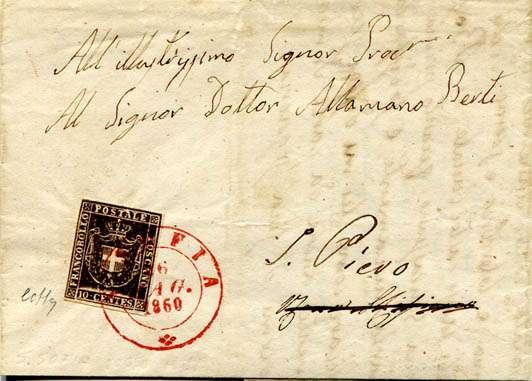 All'illustrissimo Signor Proc
Al Signor Dottor Allamano Berti
S. Piero
FRANCOBOLLO
POSTALE
TOSCANO
10 CENTES
FIA
6
AG.
1860